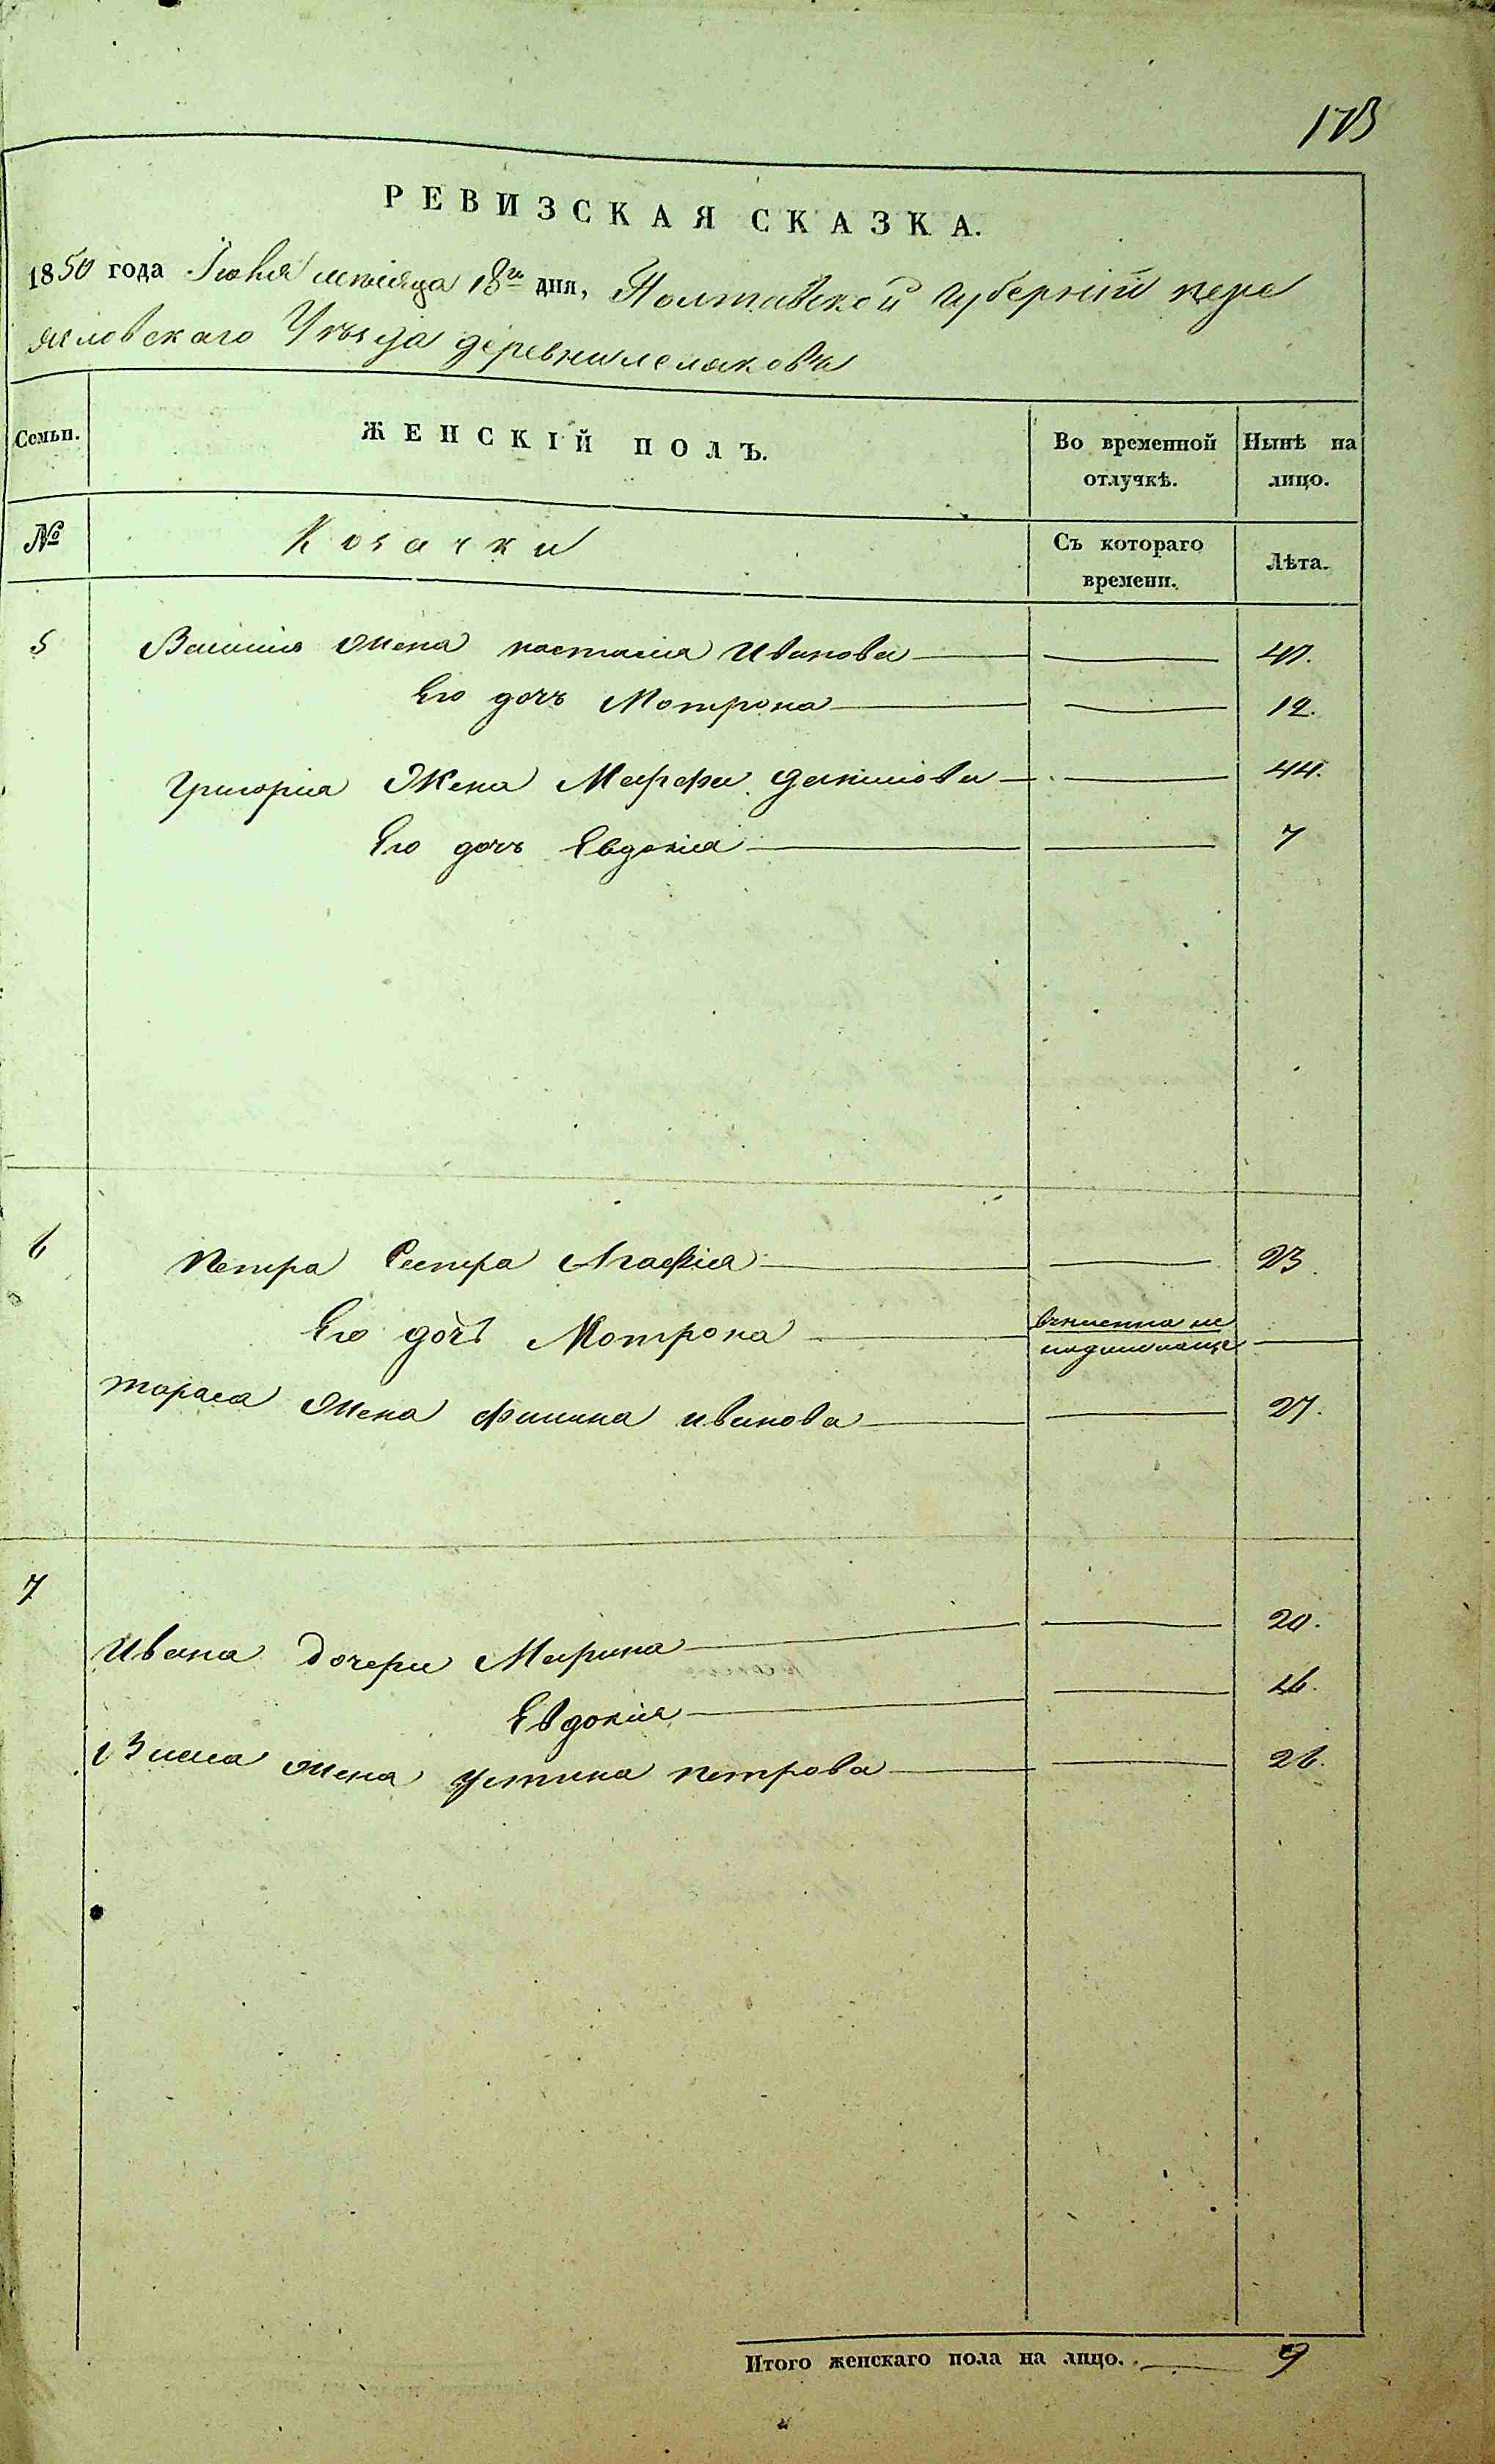 173
РЕВИЗСКАЯ СКАЗКА.
1850 года Іюня месяца 18го дня, Полтавской губерніи пере
яслов скаго Уѣзда деревни
Семьи. ЖЕНСКІЙ ПОЛЪ. Во временной отлучкѣ. Нынѣ на лицо.
№ Козачки Съ котораго времени. Лѣта.
5 Василия жена настасия Иванова 41.
Его дочъ Мотрона 12.
Григория Жена Марфа Данилова 44.
Его дочъ Евдокия 7
6 Петра Сестра Агафия 23.
Его дочъ Мотрона
тараса жена иванова 27.
7
Ивана дочери Марина 20.
Евдокия 16.
жена Устина петрова 26.
Итого женскаго пола на лицо. 9